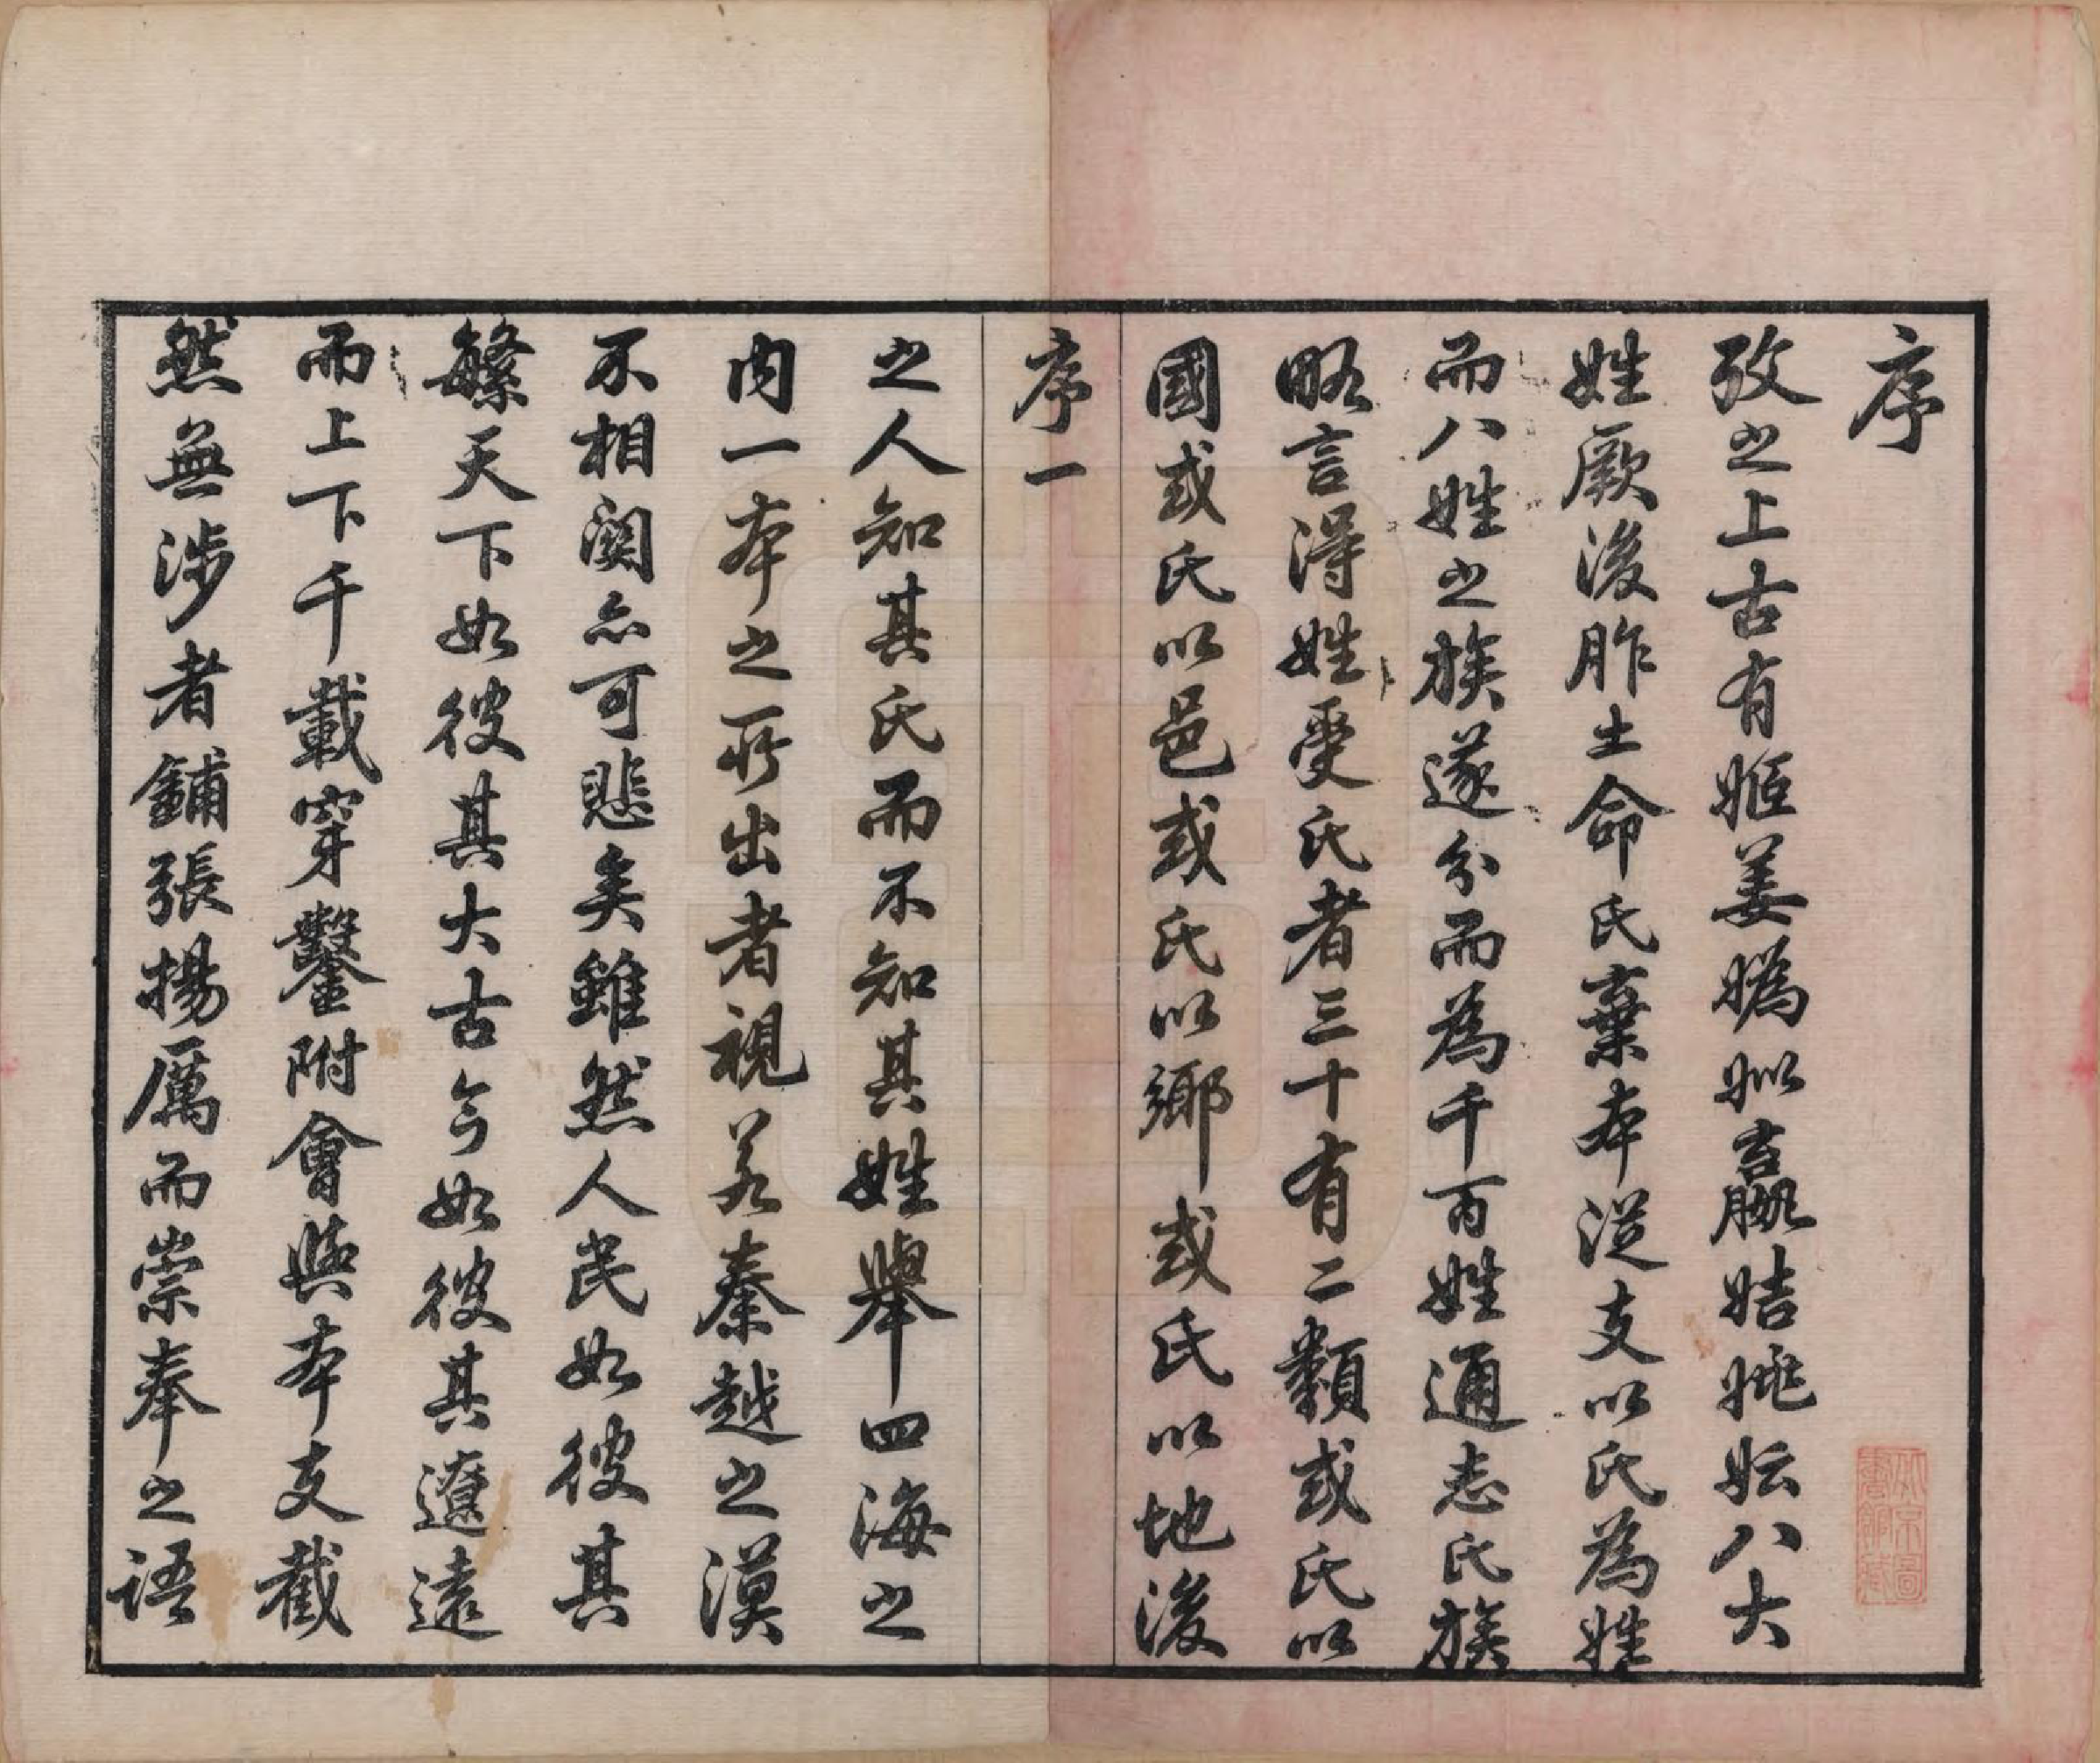 序
攷之上古有姬姜媯姒嬴姞姚妘八大
姓厥後胙土命氏棄本從支以氏為姓
而八姓之族遂分而為千百姓通志氏族
略言得姓受氏者三十有二類或氏以
國或氏以邑或氏以鄉或氏以地後
序一
之人知其氏而不知其姓舉四海之
内一本之所出者視若秦越之漠
不相関亦可悲矣雖然人民如彼其
繁天下如彼其大古今如彼其遼遠
而上下千載穿鑿附會與本支截
然無涉者鋪張揚厲而崇奉之語
北京圖書館藏